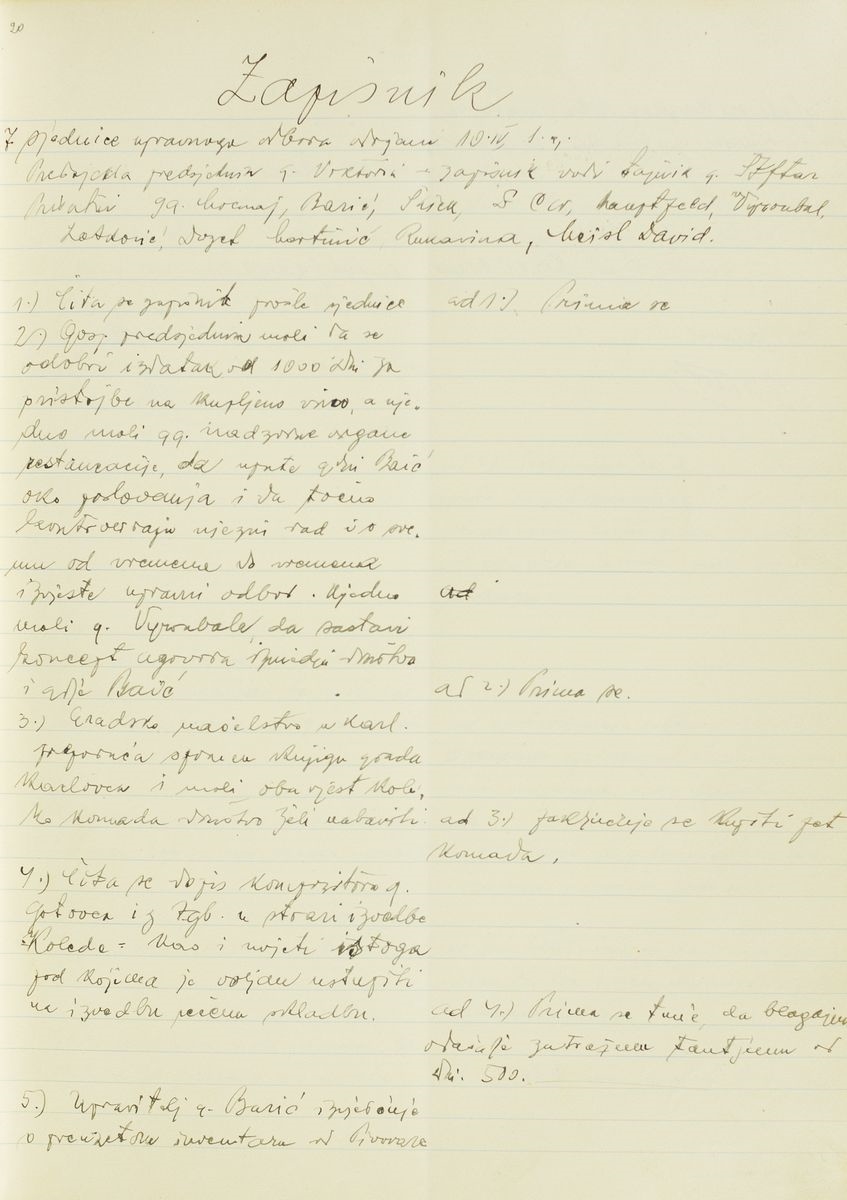 20
Zapisnik
7 sjednice upravnoga odbora održane 10. IV. t. g.
predsjednik g. zapisnik vodi tajnik g.
gg. Barić, Šilek, Hauptfeld, Vyroubal,
Dozet Martinić, Rukavina, Meisl David.
1.) Čita se zapisnik prošle sjednice
ad 1.) Prima se
2.) Gosp. predsjednik moli da se
odobri izdatak od 1000 Din za
pristojbe na kupljeno vino, a uje-
dno moli gg. nadzorne organe
restauracije, da upute gđu Baić
oko poslovanja i da točno
kontroliraju njezin rad i o sve-
mu od vremena do vremena
izvjeste upravni odbor. Ujedno
ad
moli g. Vyroubala, da sastavi
koncept ugovora između društva
i gđe Baić
ad 2.) Prima se.
3.) Gradsko načelstvo u Karl.
preporuča spomen knjigu grada
Karlovca i moli obavjest koli-
ko komada društvo želi nabaviti.
ad 3.) zaključuje se kupiti pet
komada.
4.) Čita se dopis kompozitora g.
Gotovca iz Zgb. u stvari izvedbe
"Koleda" kao i uvjeti istoga
pod kojima je voljan ustupiti
na izvedbu rečenu skladbu.
ad 4.) Prima se time, da blagajna
zatraženu tantjemu od
Din. 500.
5.) Upravitelj g. Barić izvješćuje
o inventaru od Pivovare